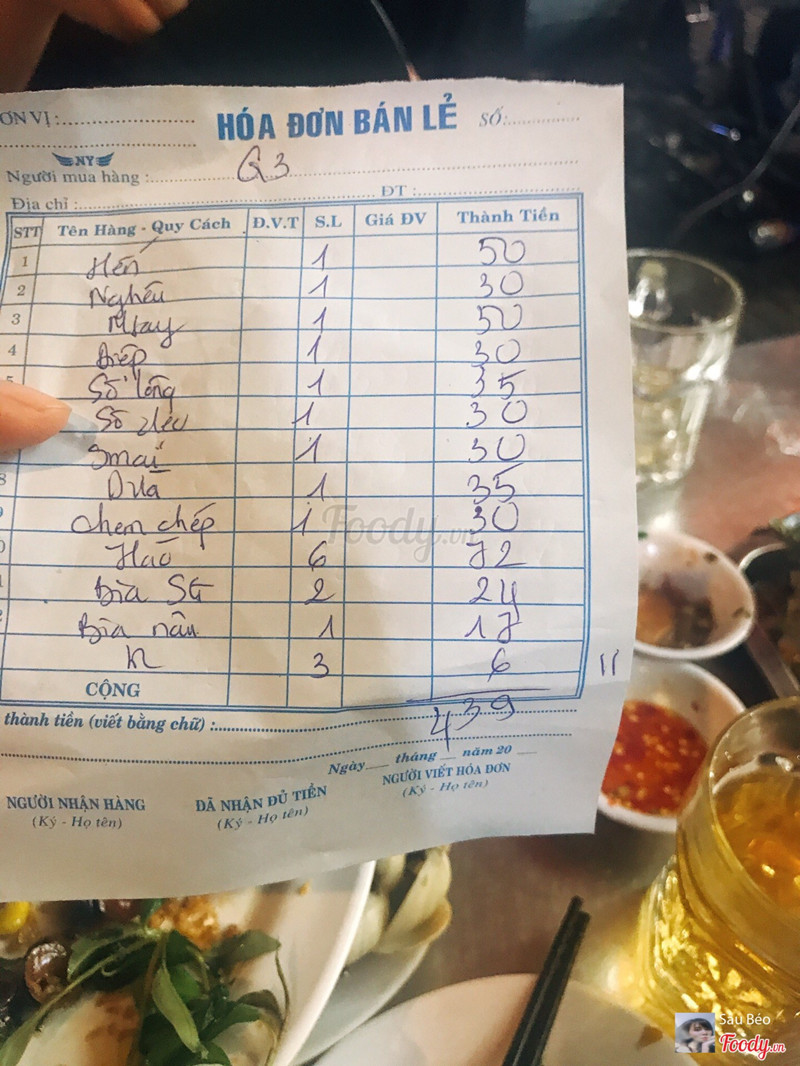 ƠN VỊ :
HÓA ĐƠN BÁN LẺ
SỐ:
NY
Người mua hàng : G3
Địa chỉ : ĐT :
STT Tên Hàng - Quy Cách Đ.V.T S.L Giá ĐV Thành Tiền
1 Hến 1 50
2 Nghêu 1 30
3 Mtay 1 50
4 Điệp 1 30
5 Sò lông 1 35
Sò dẻo 1 30
Smai 1 30
8 Dừa 1 35
9 chem chép 1 30
0 Hào 6 72
1 Bia SG 2 24
2 Bia nâu 1 17
K 3 6 11
CỘNG
439
thành tiền (viết bằng chữ) :
Ngày tháng năm 20
NGƯỜI NHẬN HÀNG ĐÃ NHẬN ĐỦ TIỀN NGƯỜI VIẾT HÓA ĐƠN
(Ký - Họ tên) (Ký - Họ tên) (Ký - Họ tên)
Foody.vn
Sâu Béo
Foody.vn